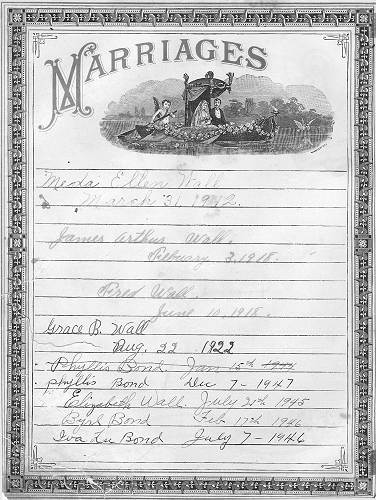 MARRIAGES
Meda Ellen Wall
March 31, 1912.
James Arthur Wall.
Febuary 3, 1918.
Fred Wall.
June 10, 1918.
Grace B. Wall
Aug. 22 1922
Phyllis Bond Jan 15th
Phyllis Bond Dec 7 - 1947
Elizabeth Wall. July 21st 1945
Byrl Bond Feb 17th 1946
Iva Lu Bond July 7 - 1946